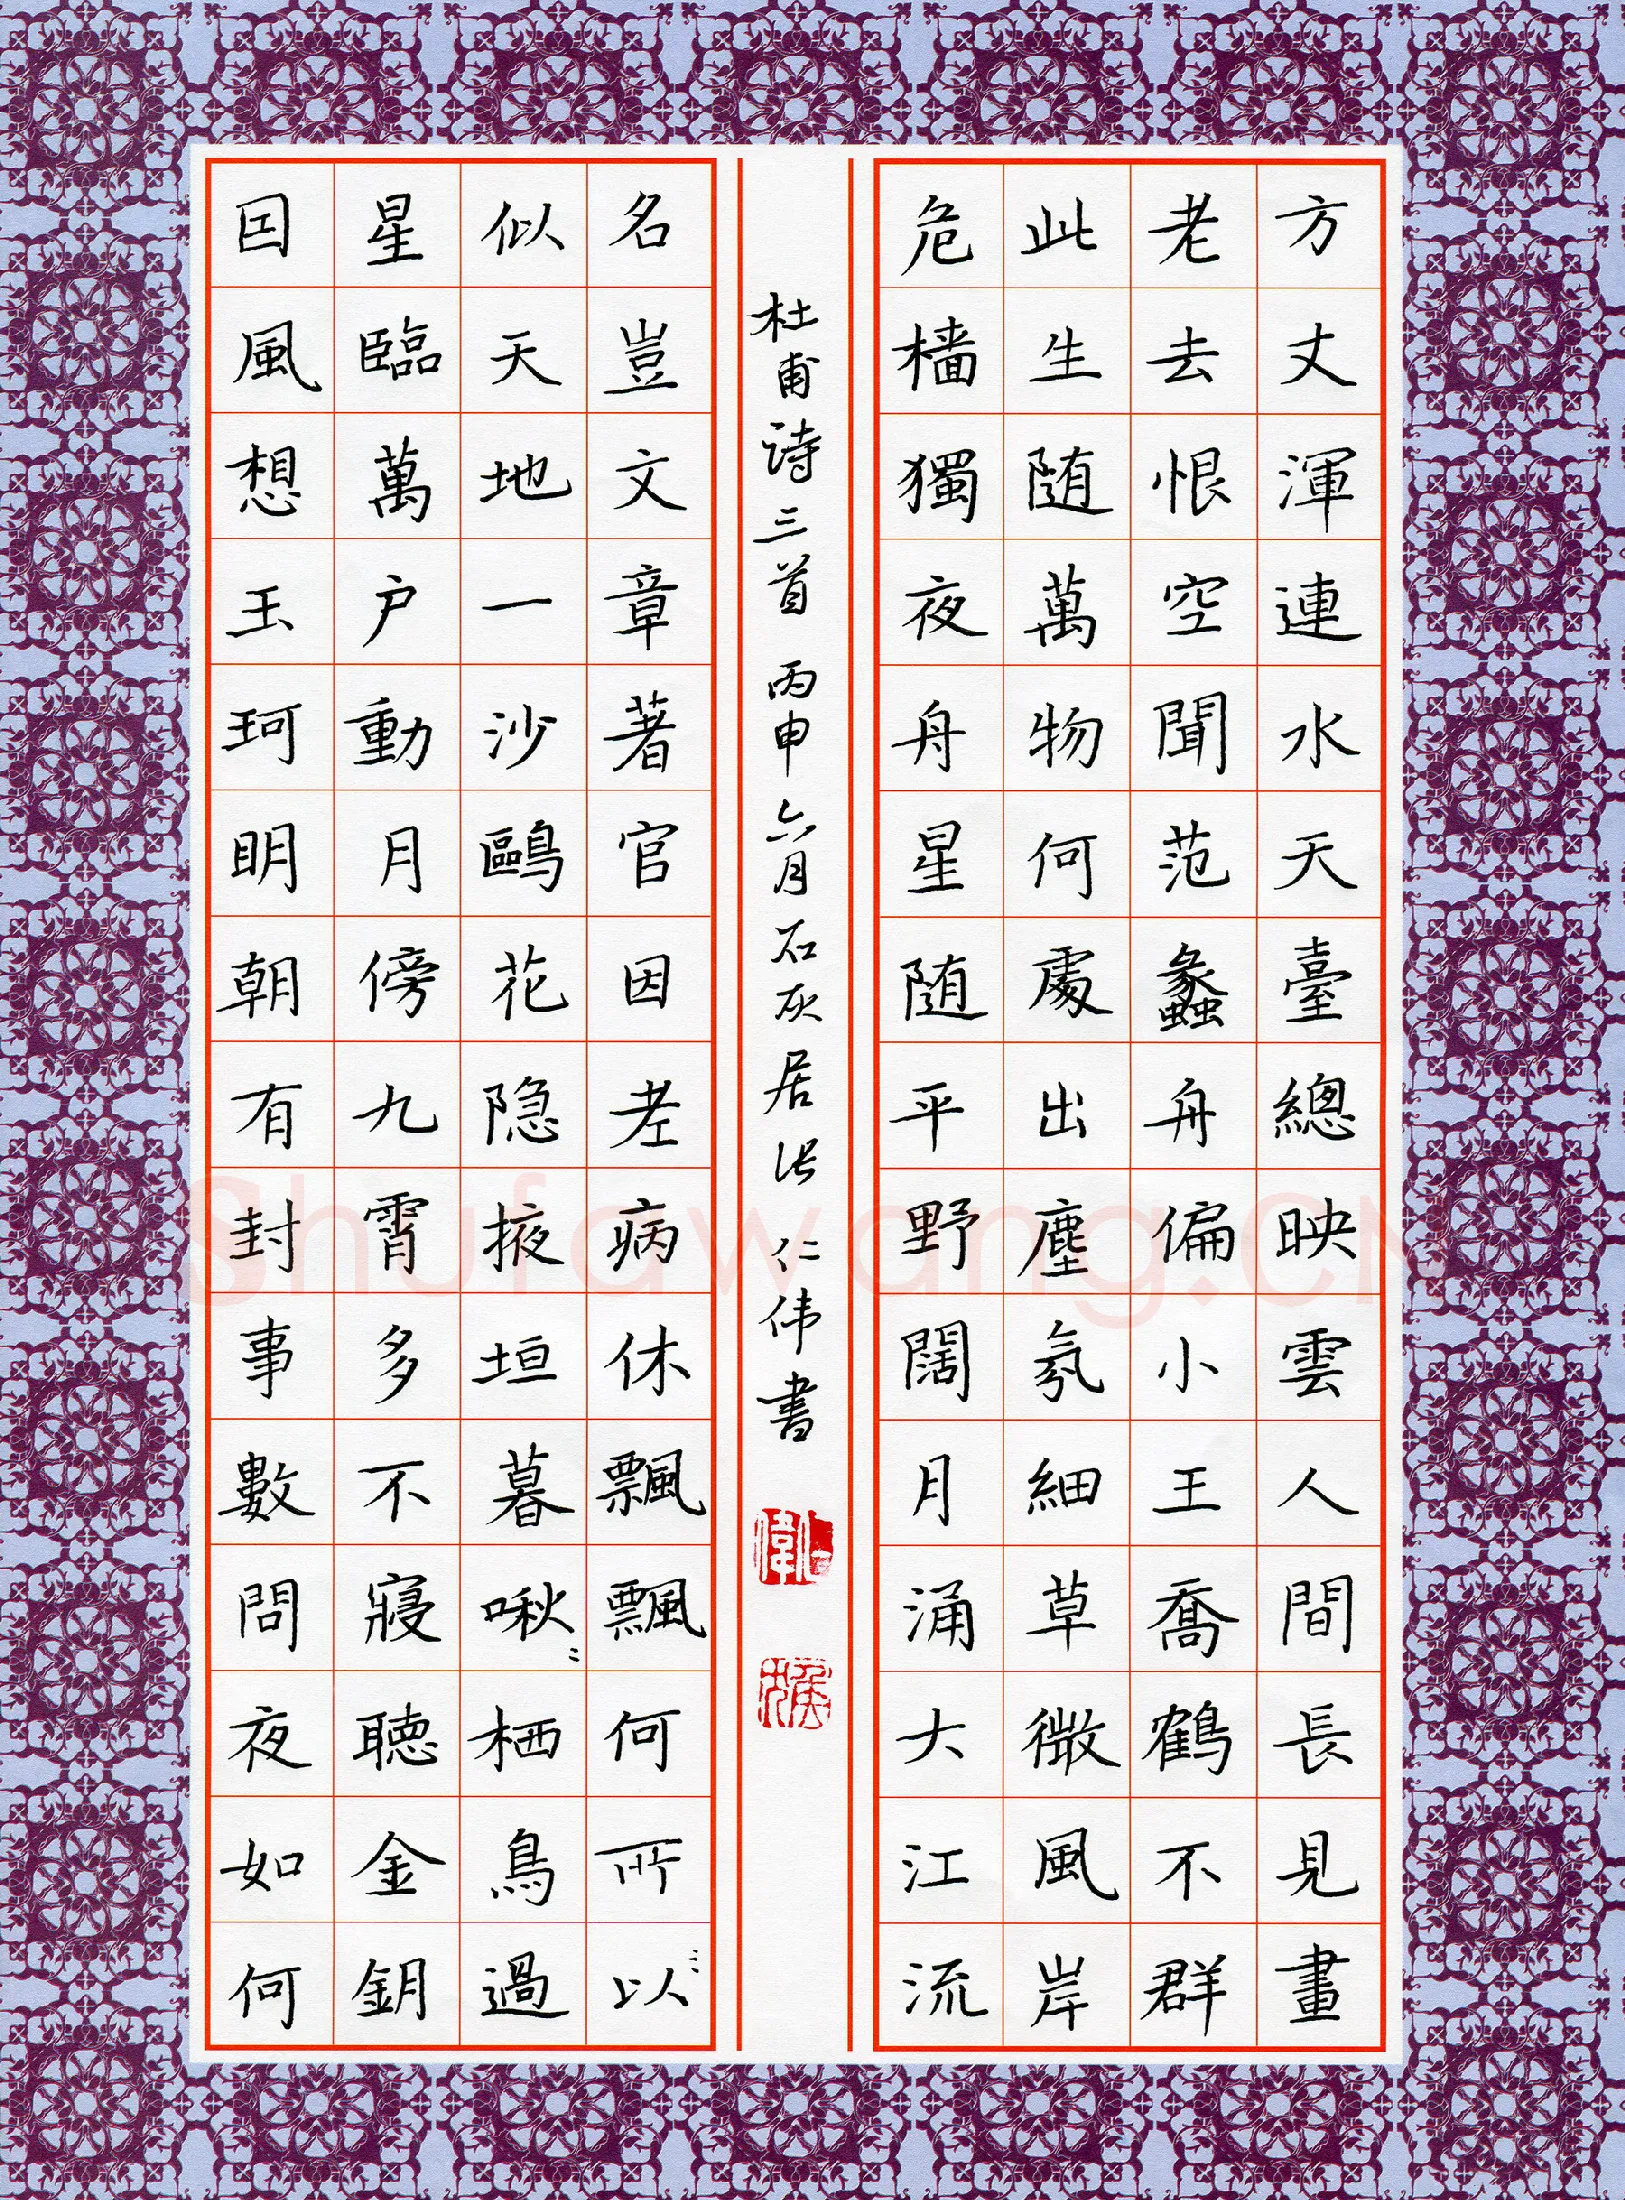 方丈渾連水天臺總映雲人間長見畫
老去恨空聞范蠡舟偏小王喬鶴不群
此生随萬物何處出塵氛細草微風岸
危樯獨夜舟星随平野闊月涌大江流
杜甫诗三首 丙申六月石灰居张仁伟書
仁偉
名豈文章著官因老病休飄飄何所以
似天地一沙鷗花隐掖垣暮啾〻栖鳥過
星臨萬户動月傍九霄多不寢聽金鈅
囙風想玉珂明朝有封事數問夜如何
Shufawang.CN